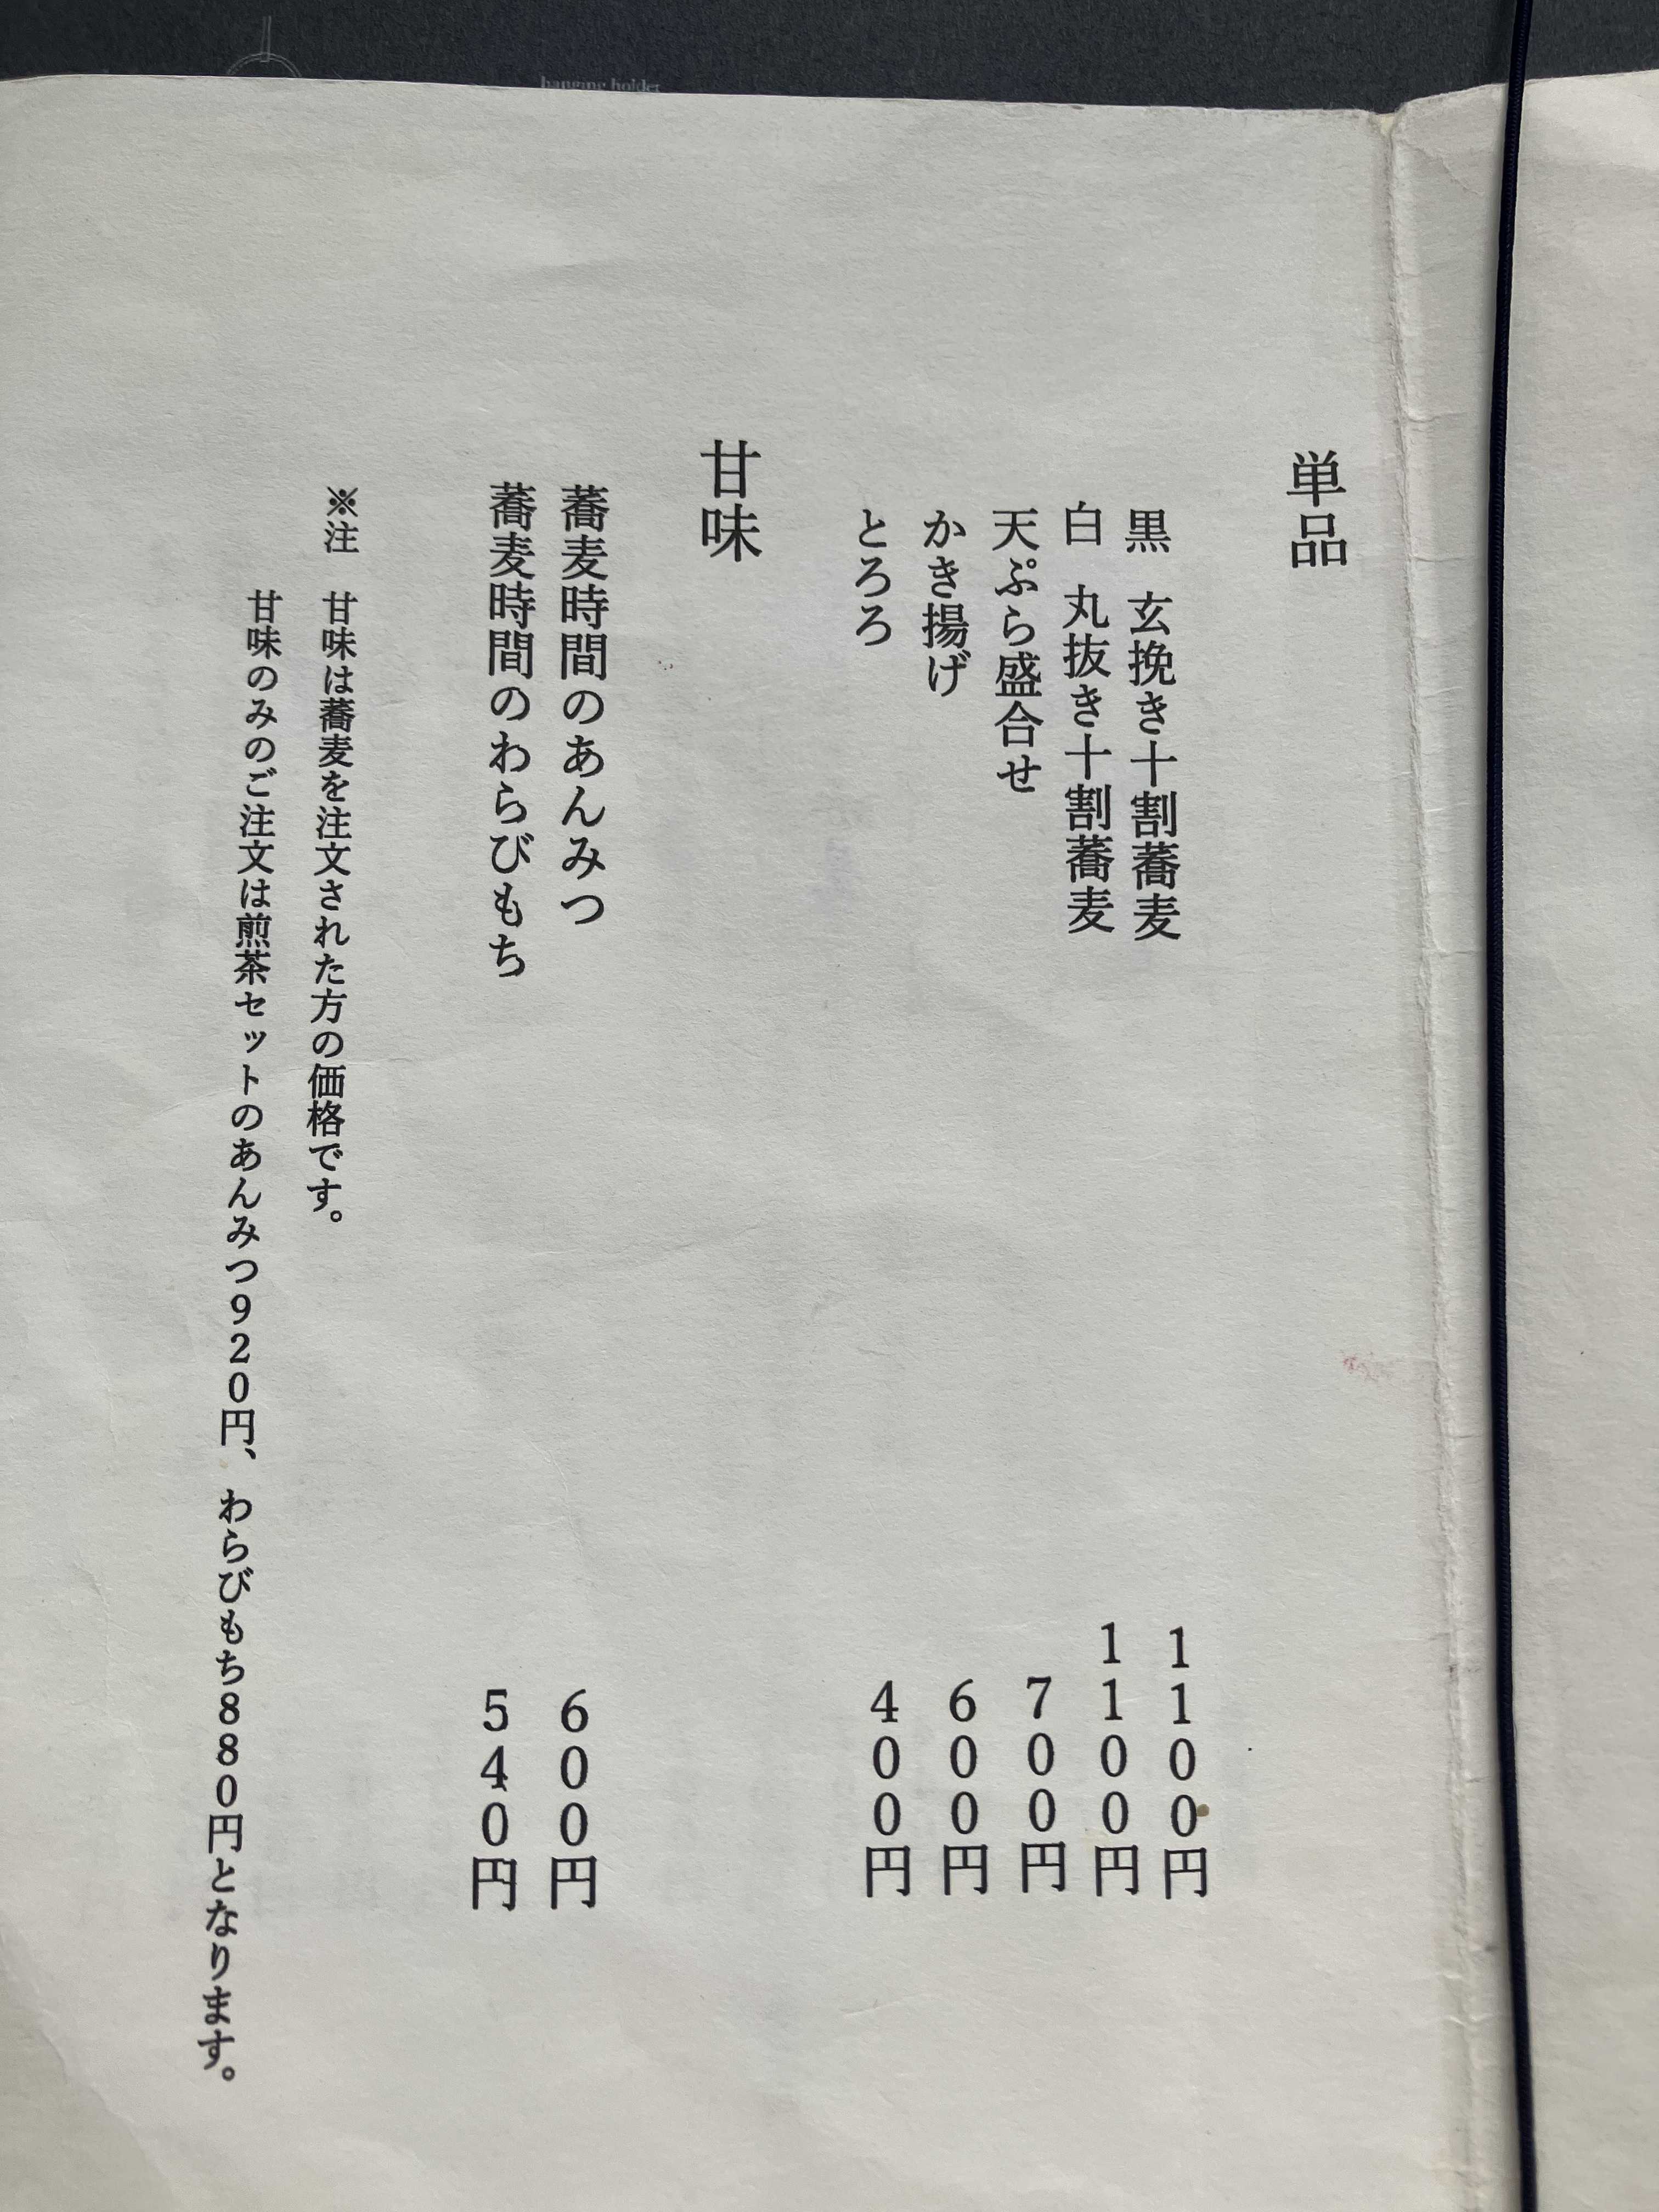 hanging holder
単品
黒 玄挽き十割蕎麦 1100円
白 丸抜き十割蕎麦 1100円
天ぷら盛合せ 700円
かき揚げ 600円
とろろ 400円
甘味
蕎麦時間のあんみつ 600円
蕎麦時間のわらびもち 540円
※注 甘味は蕎麦を注文された方の価格です。
甘味のみのご注文は煎茶セットのあんみつ920円、わらびもち880円となります。